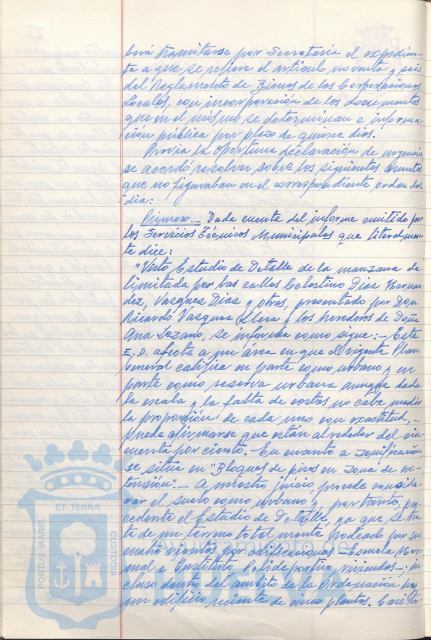 berá tramitarse por Secretaría el expedien-
te a que se refiere el artículo noventa y seis
del Reglamento de Bienes de las Corporaciones
Locales, con incorporación de los documentos
que en el mismo se determinan e informa-
ción pública por plazo de quince días.
Previa la oportuna declaración de urgencia
se acordó resolver sobre los siguientes asuntos
que no figuraban en el correspondiente orden del
día:
Primero.- Dada cuenta del informe emitido por
los Servicios Técnicos Municipales que literalmen-
te dice:
"Visto Estudio de Detalle de la manzana de-
limitada por las calles Celestino Díaz Hernan-
dez, Vazquez Díaz y otras, presentado por Don
Ricardo Vazquez y los herederos de Doña
Ana Lozano, se informa como sigue:- Este
E.D. afecta a un área en que el vigente Plan
General califica en parte como urbano y en
parte como reserva urbana aunque dada
la escala y la falta de cotas no cabe medir
la proporción de cada uno con exactitud,-
puede afirmarse que están alrededor del cin-
cuenta por ciento.- En cuanto a zonificación
se sitúa en "Bloques de pisos en zona de ex-
tensión".- A nuestro juicio, procede conside-
rar el suelo como urbano y, por tanto, pro-
cedente el Estudio de Detalle, ya que se tra-
ta de un terreno totalmente rodeado por sus
cuatro vientos por edificaciones -Escuela Nor-
mal e Instituto, Polideportivo, viviendas-, in-
cluso dentro del ámbito de la Ordenación por
un edificio reciente de cinco plantas.
PORTUS MARIS
ET TERRAE
CUSTODIA